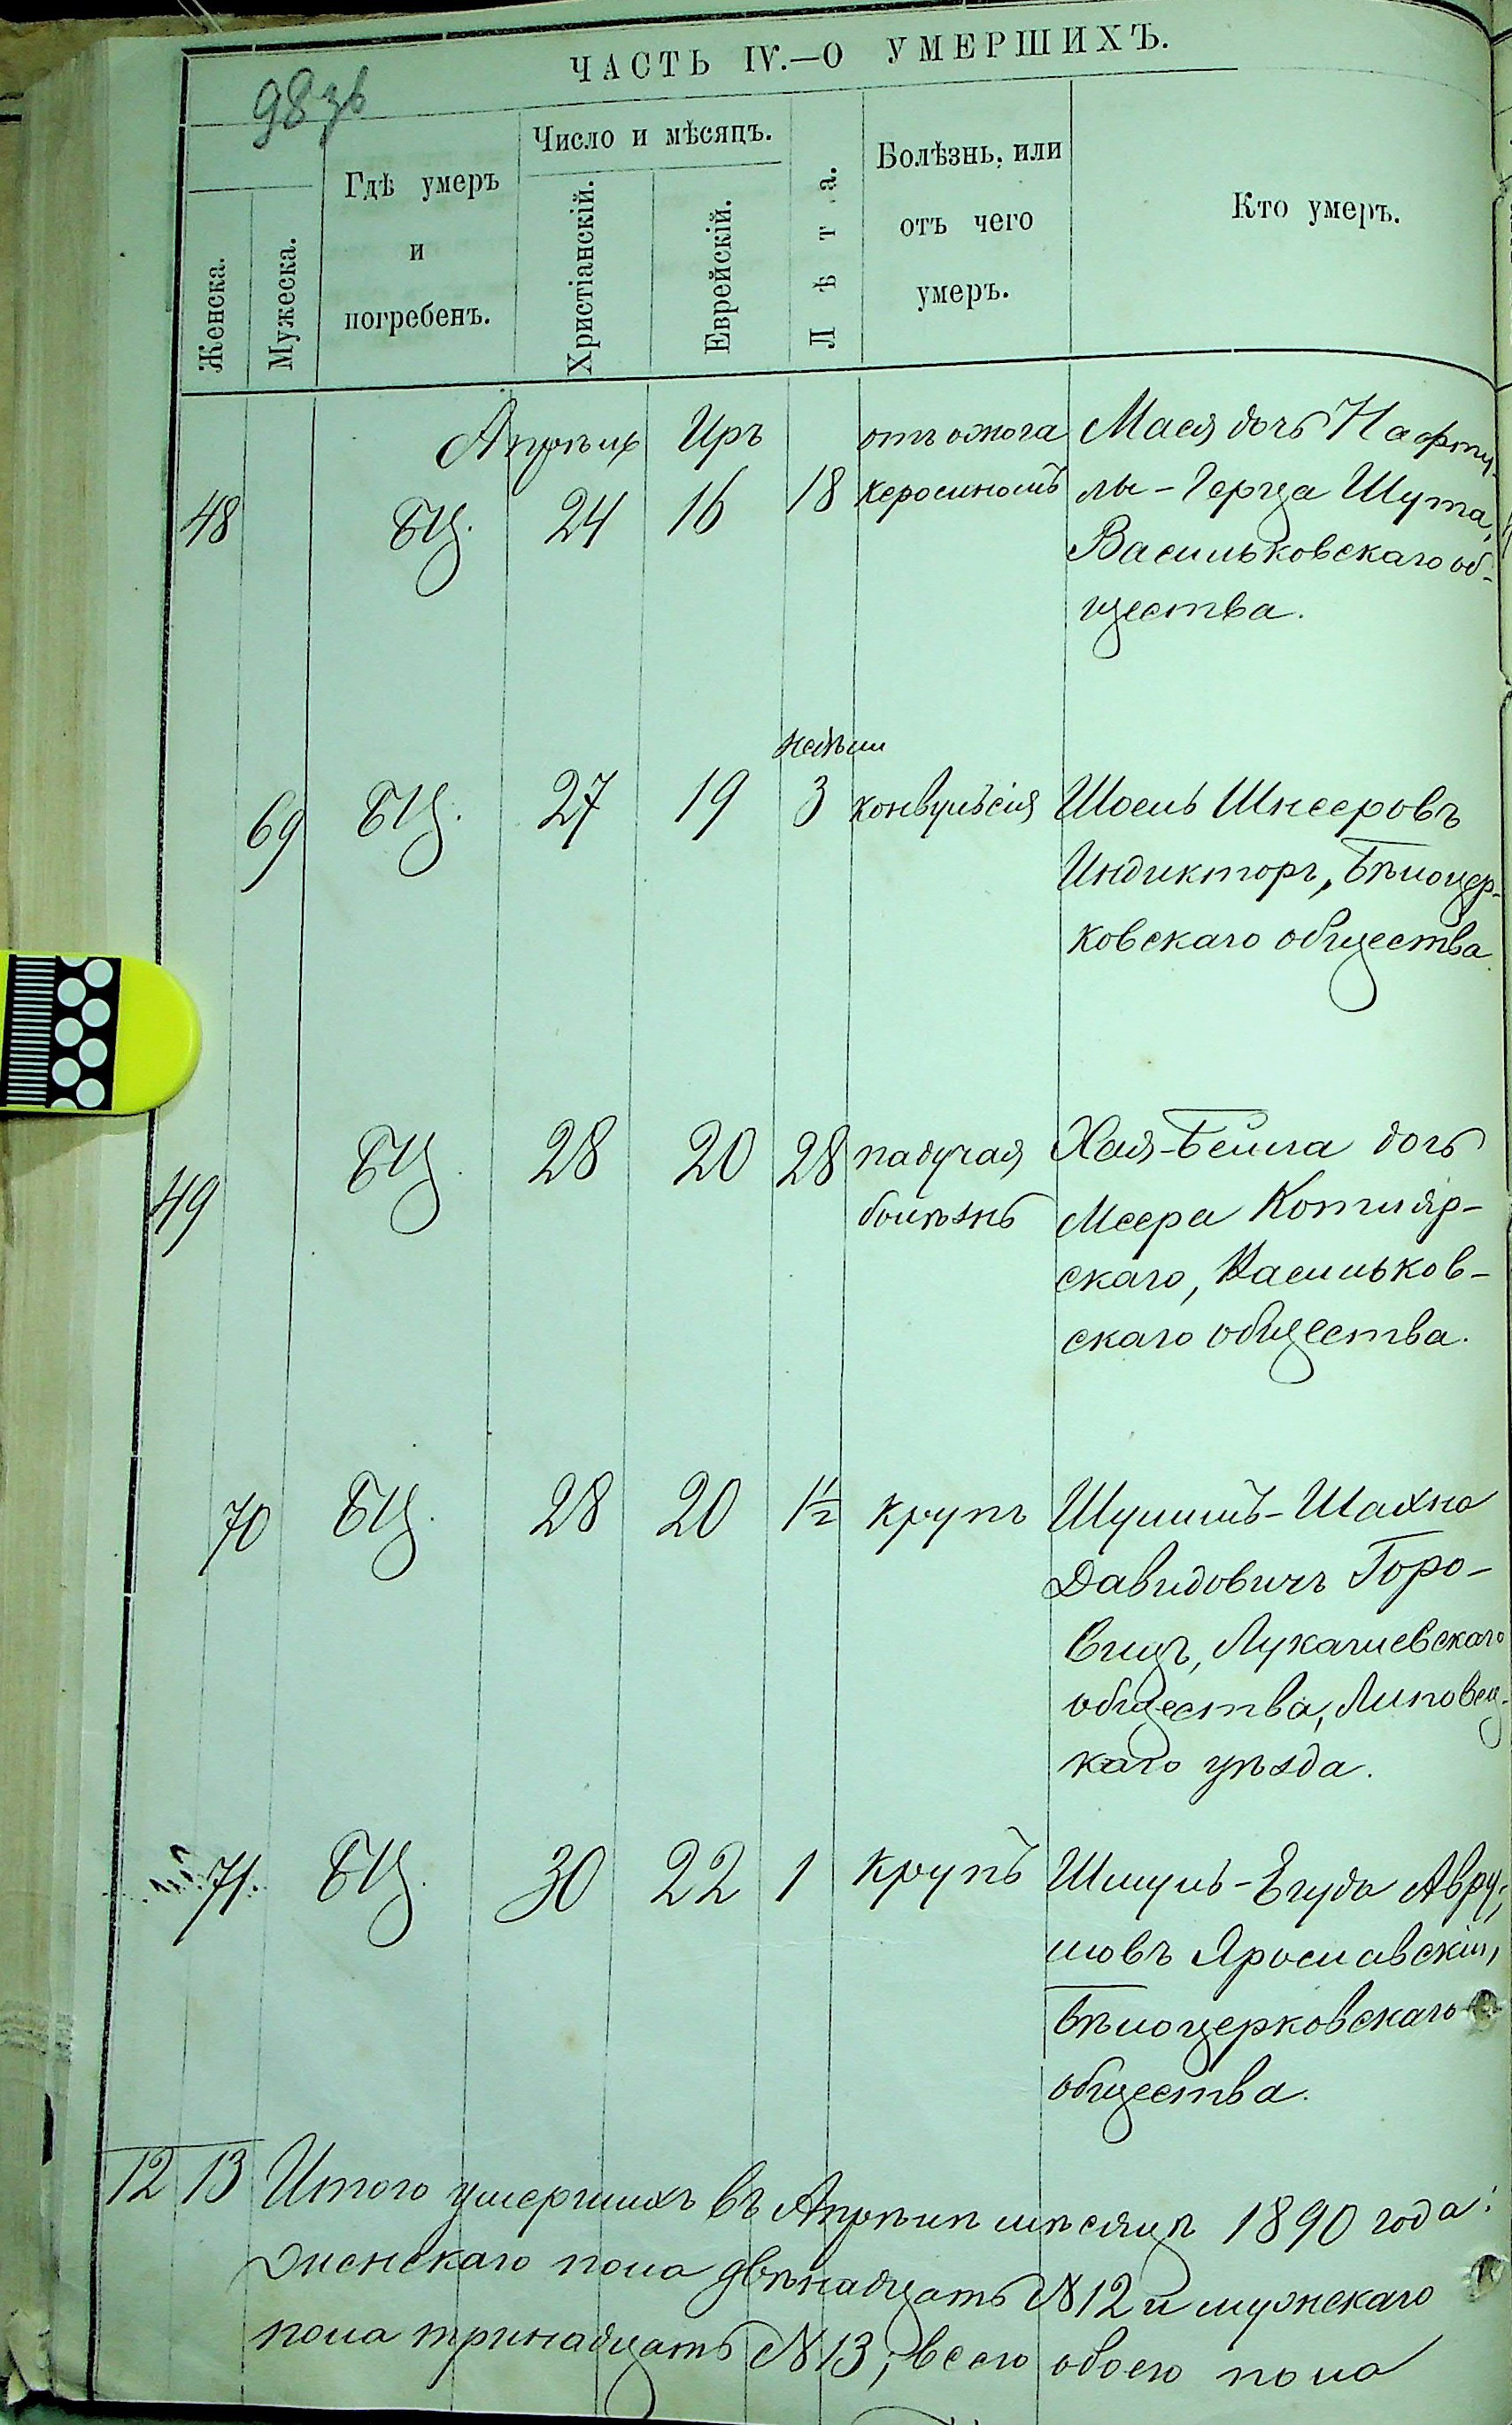 ЧАСТЬ IV.—О УМЕРШИХЪ.
98 зв
Женска.
Мужеска.
Гдѣ умеръ
и
погребенъ.
Число и мѣсяцъ.
Христіанскій.
Еврейскій.
Лѣта.
Болѣзнь, или
отъ чего
умеръ.
Кто умеръ.
Апрѣль Иръ
48 БЦ. 24 16 18 отъ ожога
керосиномъ
Мася дочь Нафту-
лы-Герца Шута,
Васильковскаго об-
щества.
недѣли
69 БЦ. 27 19 3 конвульсія
Шоель Шнееровъ
Индикторъ, Бѣлоцер-
ковскаго общества.
49 БЦ. 28 20 28 падучая
болѣзнь
Хая-Бейла дочь
Меера Котляр-
скаго, Васильков-
скаго общества.
70 БЦ. 28 20 1½ крупъ
Шулимъ-Шахна
Давидовичъ Горо-
вицъ, Лукашевскаго
общества, Липовец-
каго уѣзда.
71. БЦ. 30 22 1 крупъ
Шмуль-Егуда Авру-
мовъ Ярославскій,
Бѣлоцерковскаго
общества.
12 13 Итого умершихъ въ Апрѣлѣ мѣсяцѣ 1890 года:
женскаго пола двѣнадцать №12 и мужскаго
пола тринадцать №13, всего обоего пола